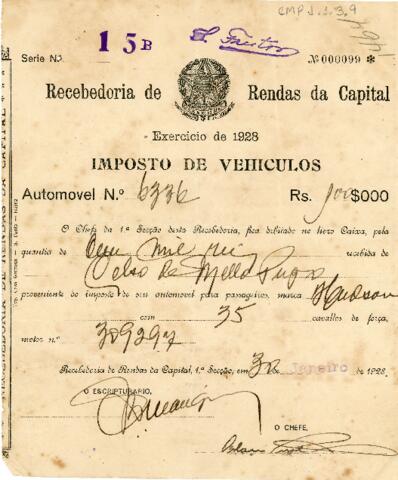 CMP J. 1.3.9
Serie N.º 15B Nº 000099 *
Recebedoria de Rendas da Capital
Exercicio de 1928
IMPOSTO DE VEHICULOS
Automovel N.º 6336 Rs. 100$000
O Chefe da 1.ª Secção desta Recebedoria, fica debitado no livro Caixa, pela
quantia de Cem mil reis recebida de
Celso de Mello Pupo
proveniente do imposto de seu automovel para passageiros, marca Hudson
com 35 cavallos de força,
motor n.º 309297
Recebedoria de Rendas da Capital, 1.ª Secção, em 30 de Janeiro de 1928.
O ESCRIPTURARIO,
O CHEFE,
RECEBEDORIA DE RENDAS DA CAPITAL